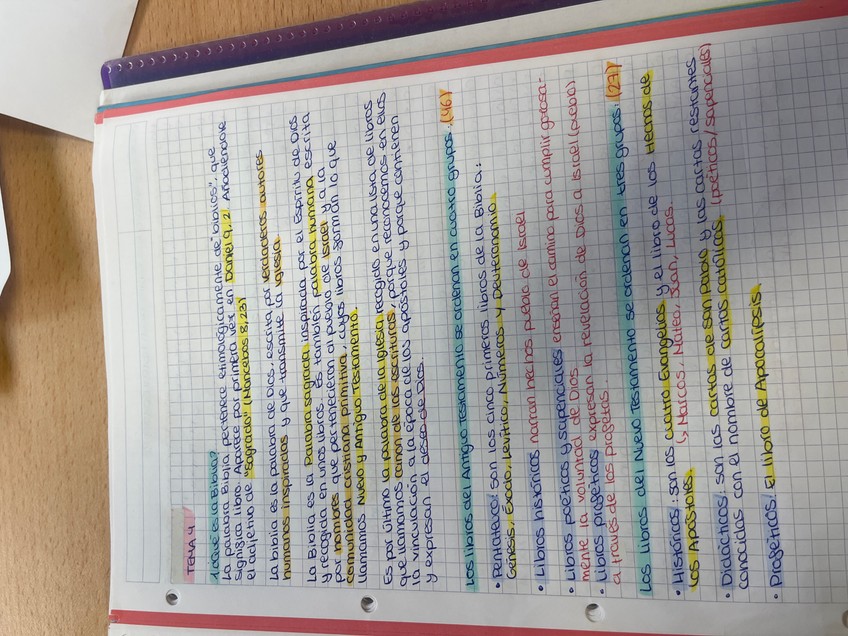 TEMA 4
¿Qué es la Biblia?
La palabra Biblia pertenece etimológicamente de "biblios", que
significa libro. Aparece por primera vez en Daniel 9, 2. Añadiéndove
el adjetivo de "sagrado" (Macabeos 8, 23)
La biblia es la palabra de Dios, escrita por verdaderos autores
humanos inspirados y que transmite la iglesia.
La Biblia es la palabra sagrada inspirada por el Espíritu de Dios
y recogida en unos libros. Es también palabra humana, escrita
por hombres que pertenecieron al pueblo de Israel y a la
comunidad cristiana primitiva, cuyos libros forman lo que
llamamos Nuevo y Antiguo Testamento.
Es por último la palabra de la iglesia recogido en una lista de libros
que llamamos canon de las escrituras, porque reconocemos en ellos
la vinculación a la época de los apóstoles y porque contienen
y expresan el deseo de Dios.
Los libros del Antiguo Testamento se ordenan en cuatro grupos: (46)
• Pentateuco: son los cinco primeros libros de la Biblia:
Génesis, Éxodo, Levítico, Números y Deuteronomio.
• Libros históricos narran hechos pueblo de Israel
• Libros poéticos y sapienciales enseñan el camino para cumplir gozosa-
mente la voluntad de Dios
• Libros proféticos expresan la revelación de Dios a Israel (pueblo)
a través de los profetas.
Los libros del Nuevo Testamento se ordenan en tres grupos: (27)
• Históricos: son los cuatro Evangelios y el libro de los Hechos de
los Apóstoles. ↳ Marcos, Mateo, Juan, Lucas.
• Didácticos: son las cartas de San Pablo y las cartas restantes
conocidas con el nombre de cartas católicas. (poéticos/sapienciales)
• Proféticos: El libro de Apocalipsis.